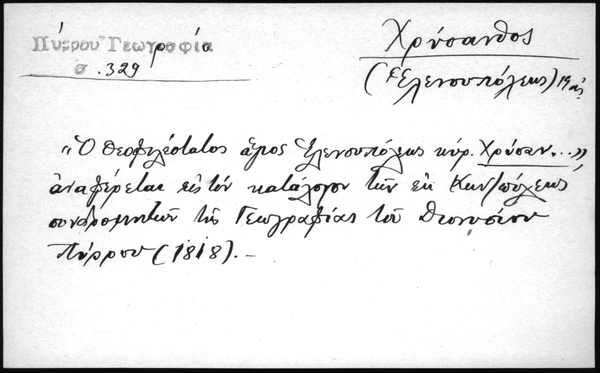 Πύρρου Γεωγραφία
σ. 329
Χρύσανθος
(Ἑλενουπόλεως) 19 αἰ
"Ὁ θεοφιλέστατος ἅγιος Ἑλενουπόλεως κύρ. Χρύσαν..."
ἀναφέρεται εἰς τόν κατάλογον τῶν ἐκ Κων/πόλεως
συνδρομητῶν τῆς Γεωγραφίας τοῦ Διονυσίου
Πύρρου (1818). –